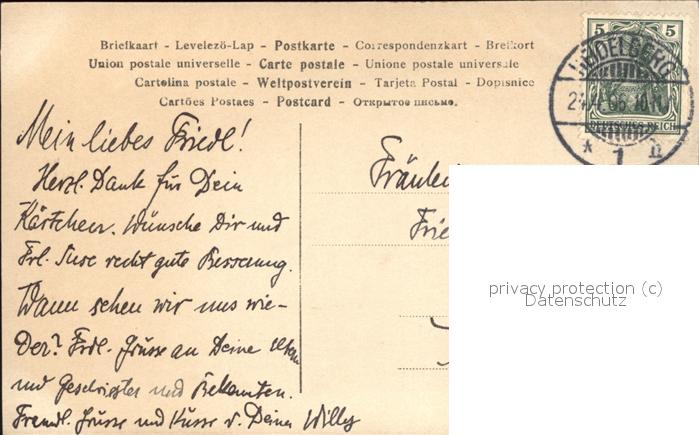 Briefkaart - Levelező-Lap - Postkarte - Correspondenzkart - Brefkort
Union postale universelle - Carte postale - Unione postale universale
Cartolina postale - Weltpostverein - Tarjeta Postal - Dopisnice
Cartões Postaes - Postcard - Открытое письмо.
5 5
HEIDELBERG
DEUTSCHES REICH
* 1 n
Mein liebes Friedl!
Herzl. Dank für Dein
Kärtchen. Wünsche Dir und
Frl. Suse recht gute Besserung.
Wann sehen wir uns wie-
der? Frdl. Grüsse an Deine Eltern
und Geschwister und Bekannten.
Freundl. Grüsse und Küsse v. Deinem Willy
Fräulei
Frie
privacy protection (c)
Datenschutz